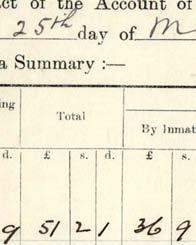 ct of the Account of
25th day of M
a Summary :—
ing Total
By Inmat
d. £ s. d. £ s.
9 51 2 1 36 9